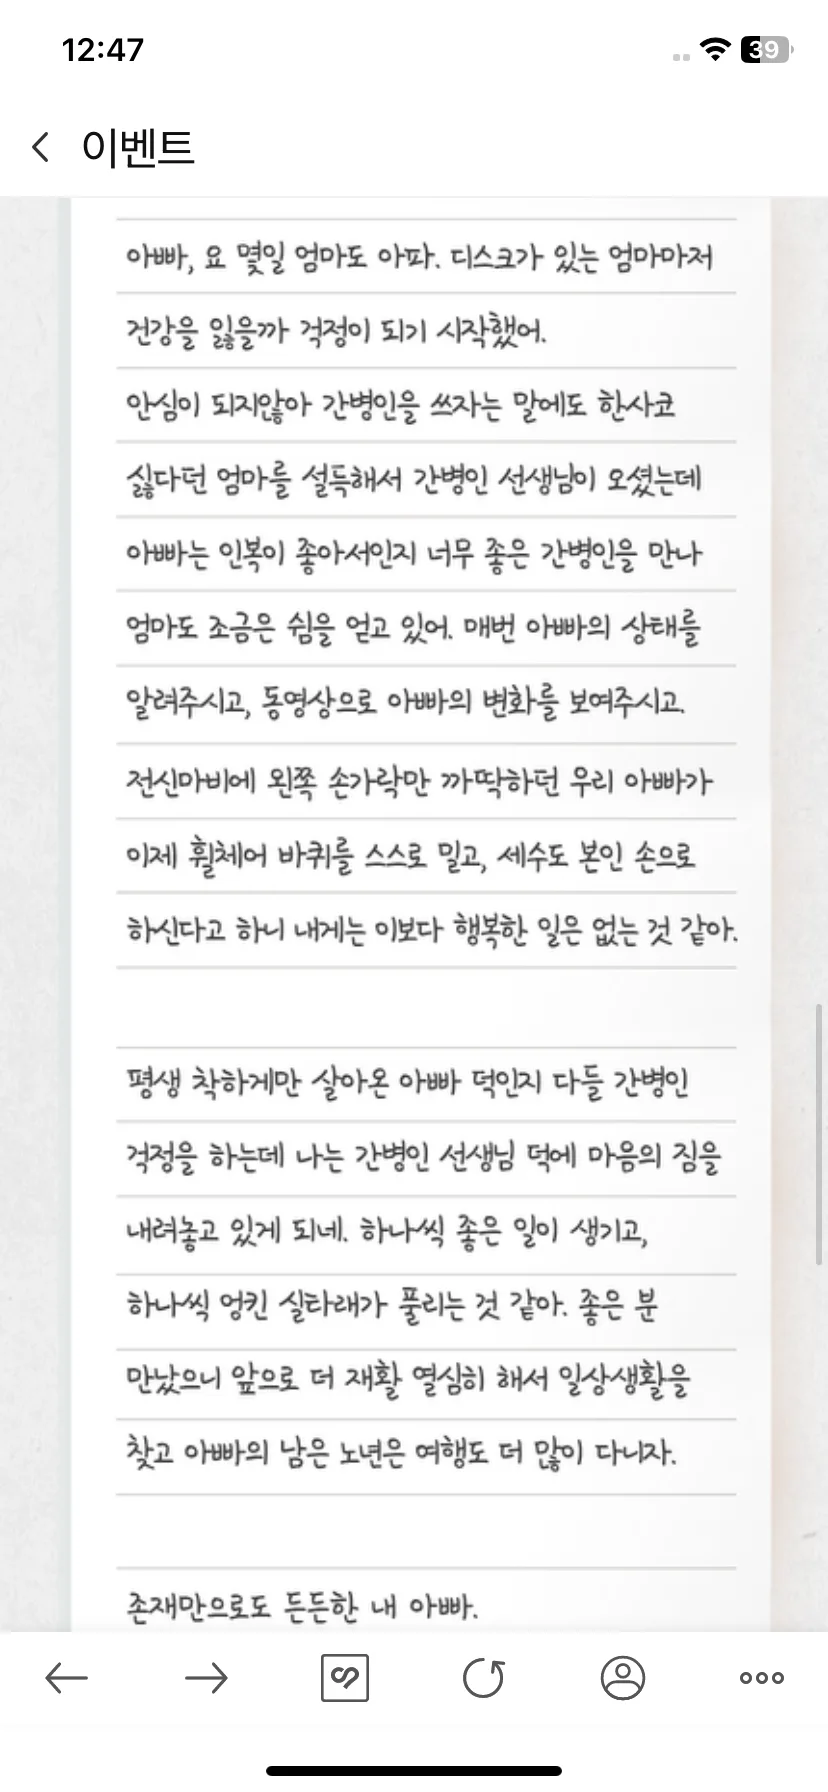 12:47
39
이벤트
아빠, 요 몇일 엄마도 아파. 디스크가 있는 엄마마저
건강을 잃을까 걱정이 되기 시작했어.
안심이 되지않아 간병인을 쓰자는 말에도 한사코
싫다던 엄마를 설득해서 간병인 선생님이 오셨는데
아빠는 인복이 좋아서인지 너무 좋은 간병인을 만나
엄마도 조금은 쉼을 얻고 있어. 매번 아빠의 상태를
알려주시고, 동영상으로 아빠의 변화를 보여주시고.
전신마비에 왼쪽 손가락만 까딱하던 우리 아빠가
이제 휠체어 바퀴를 스스로 밀고, 세수도 본인 손으로
하신다고 하니 내게는 이보다 행복한 일은 없는 것 같아.
평생 착하게만 살아온 아빠 덕인지 다들 간병인
걱정을 하는데 나는 간병인 선생님 덕에 마음의 짐을
내려놓고 있게 되네. 하나씩 좋은 일이 생기고,
하나씩 엉킨 실타래가 풀리는 것 같아. 좋은 분
만났으니 앞으로 더 재활 열심히 해서 일상생활을
찾고 아빠의 남은 노년은 여행도 더 많이 다니자.
존재만으로도 든든한 내 아빠.